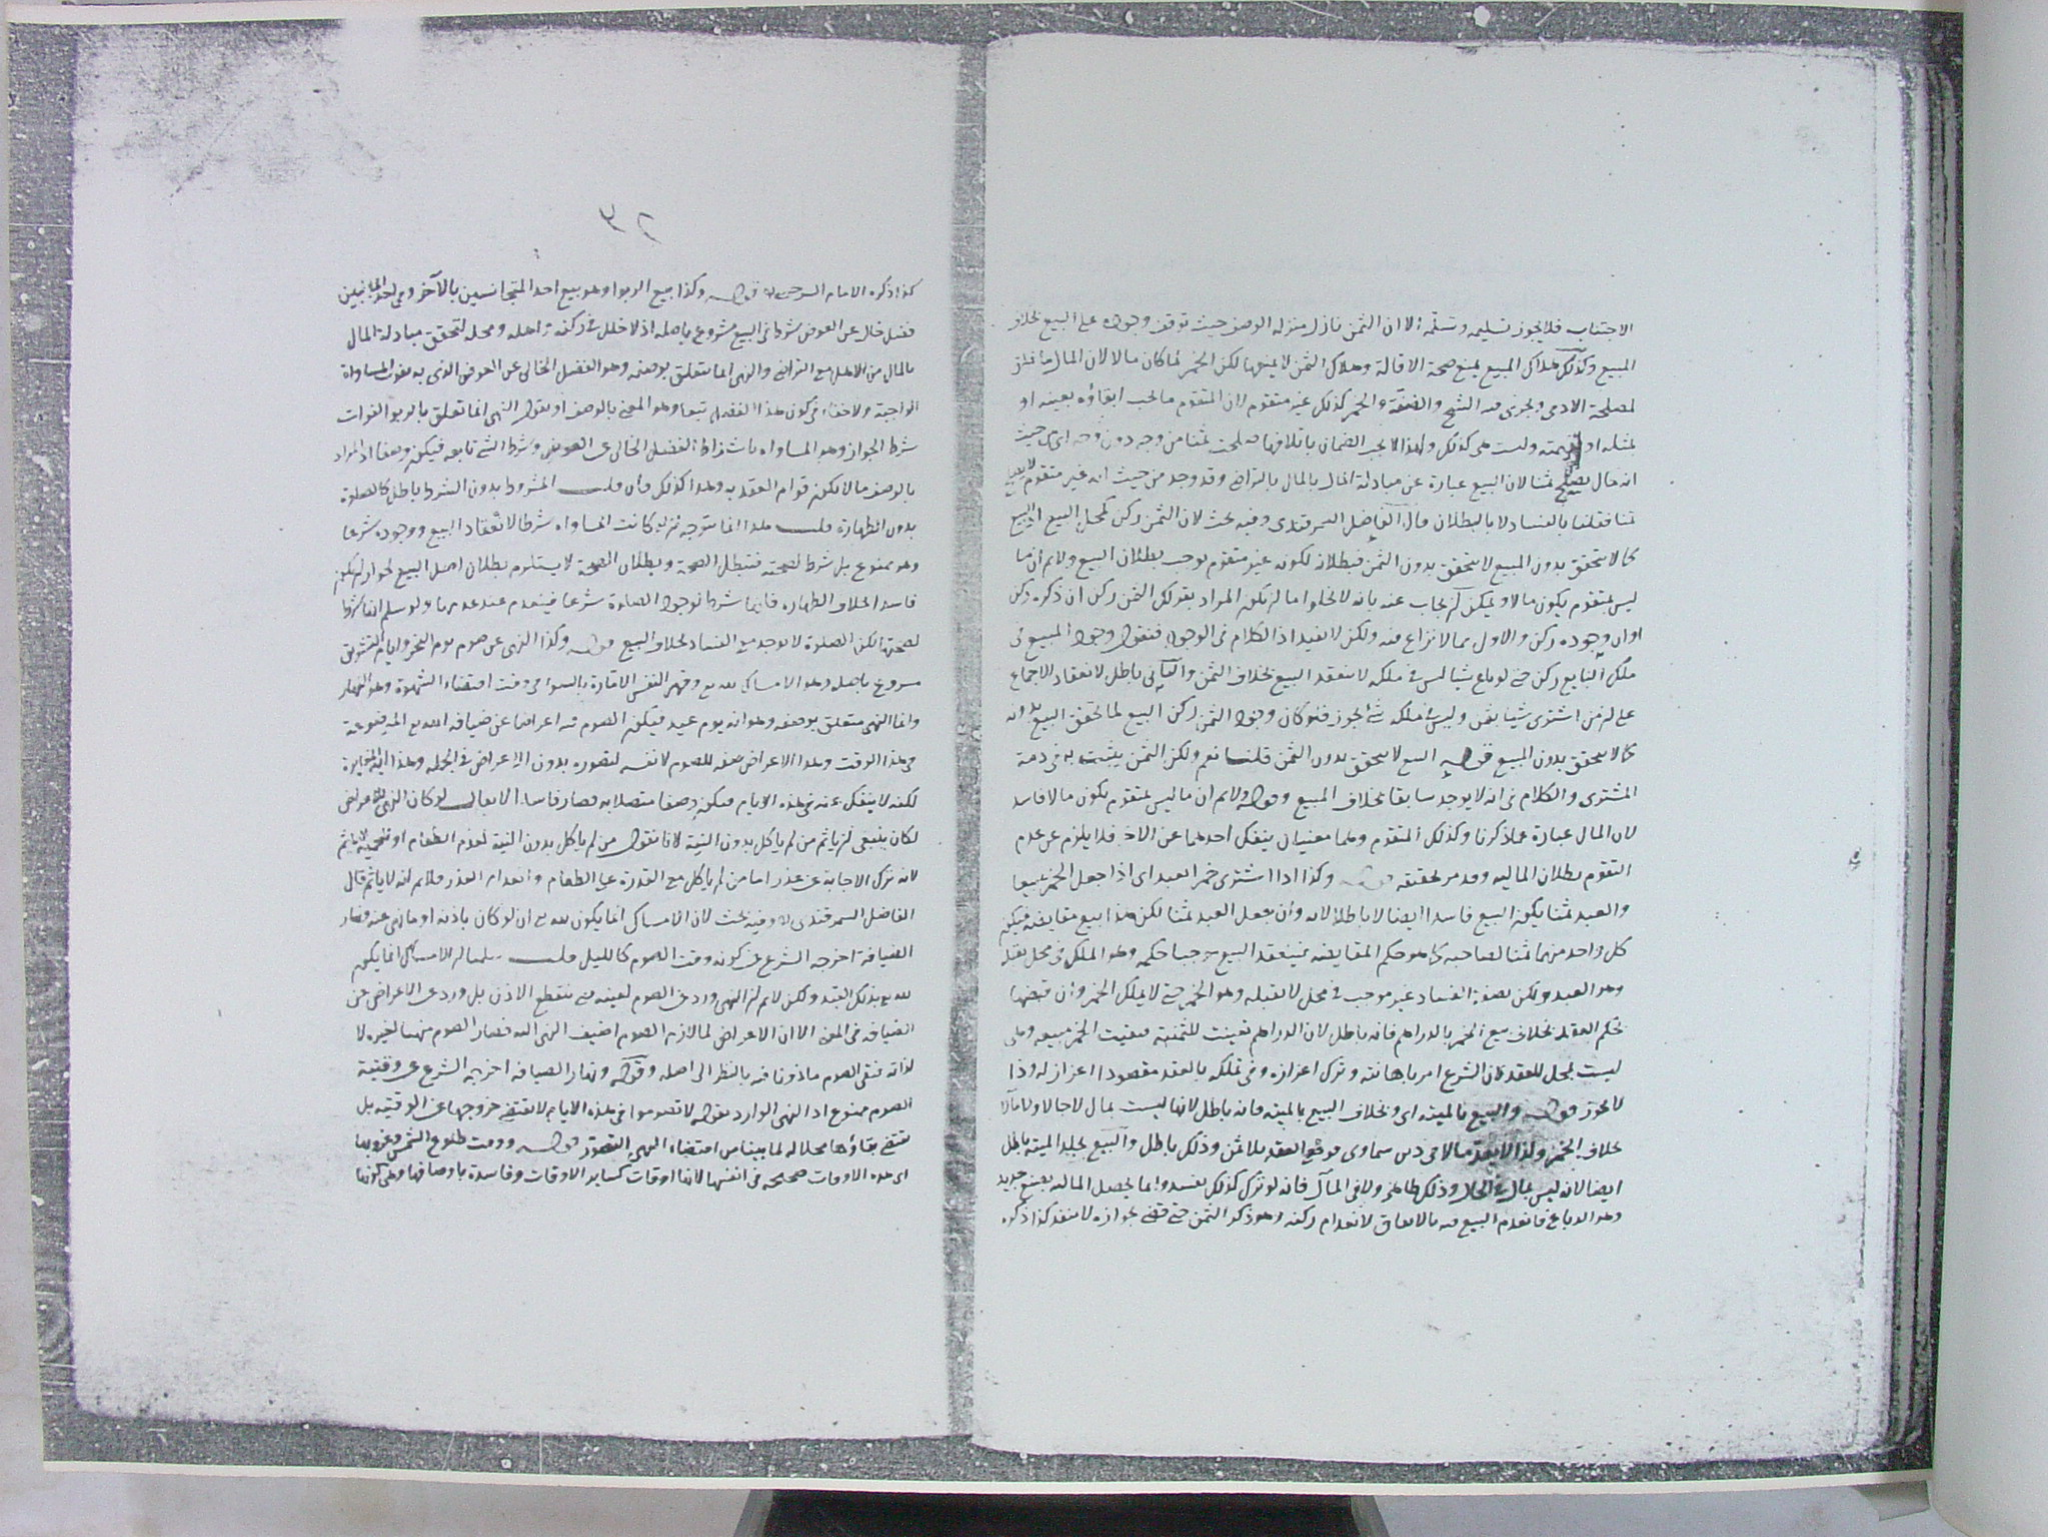 الاجتناب فلا يجوز تسليمه وتسلّمه الا ان الثمن نازل منزلة الوصف حيث توقف وجوده على المبيع بخلاف
المبيع وكذلك هلاك المبيع يمنع صحة الاقالة وهلاك الثمن لا يمنعها لكن الخمر لما كان مالا لان المال ما خلق
لمصلحة الادمى ويجرى فيه الشح والضنة والخمر كذلك غير متقوم لان المتقوم ما يجب ابقاؤه بعينه او
بمثله او بقيمته وليست هى كذلك ولهذا لا يجب الضمان باتلافها صلحت ثمنا من وجه دون وجه اى من حيث
انه مال يصلح ثمنا لان البيع عبارة عن مبادلة المال بالمال بالتراضى وقد وجد من حيث انه غير متقوم لا يصلح
ثمنا فقلنا بالفساد لا بالبطلان قال الفاضل السمرقندى وفيه بحث لان الثمن ركن كمحل البيع اذ البيع
كما لا يتحقق بدون المبيع لا يتحقق بدون الثمن فبطلان لكونه غير متقوم يوجب بطلان البيع ولا نم ان ما
ليس بمتقوم يكون مالا ويمكن ان يجاب عنه بانه لا يخلو اما ان يكون المراد بقولك الثمن ركن ان ذكره ركن
او ان وجوده ركن والاول مما لا نزاع فيه ولكن لا يفيد اذ الكلام فى الوجود فنقول وجود المبيع فى
ملك البايع ركن حتى لو باع شيا ليس فى ملكه لا ينعقد البيع بخلاف الثمن والثانى باطل لانعقاد الاجماع
على ان من اشترى شيا بثمن وليس فى ملكه شئ يجوز فلو كان وجود الثمن ركن البيع لما تحقق البيع بدونه
كما لا يتحقق بدون المبيع قوله البيع لا يتحقق بدون الثمن قلنا نعم ولكن الثمن يثبت به فى ذمة
المشترى والكلام فى انه لا يوجد سابقا بخلاف المبيع وقوله ولا نم ان ما ليس بمتقوم يكون مالا فاسد
لان المال عبارة عما ذكرنا وكذلك المتقوم وهما معنيان ينفك احدهما عن الاخر فلا يلزم من عدم
التقوم بطلان المالية وقد مر تحقيقه قوله وكذا اذا اشترى خمرا بعبد اى اذا جعل الخمر مبيعا
والعبد ثمنا يكون البيع فاسدا ايضا لا باطلا لانه وان جعل العبد ثمنا لكن هذا بيع مقايضة فيكون
كل واحد منهما ثمنا لصاحبه كما هو حكم المقايضة فينعقد البيع موجبا حكمه وهو الملك فى محل يقبله
وهو العبد ولكن بصفة الفساد غير موجب فى محل لا يقبله وهو الخمر حتى لا يملك الخمر وان قبضها
بحكم العقد بخلاف بيع الخمر بالدراهم فانه باطل لان الدراهم تعينت للثمنية فبقيت الخمر مبيعة وهى
ليست بمحل للعقد لان الشرع امر باهانته وترك اعزازه وفى تملكه بالعقد مقصودا اعزاز له وذا
لا يجوز قوله والبيع بالميتة اى وبخلاف البيع بالميتة فانه باطل لانها ليست بمال لا حالا ولا مآلا
بخلاف الخمر ولذا لا يعد مالا فى دين سماوى فوقع العقد بلا ثمن وذلك باطل والبيع بجلد الميتة باطل
ايضا لانه ليس بمال فى الحال وذلك ظاهر ولا فى المآل فانه لو ترك كذلك يفسد وانما يحصل المالية بصنع جديد
وهو الدباغ فانعدم البيع فيه بالاتفاق لانعدام ركنه وهو ذكر الثمن حتى قضى بجوازه لا ينفذ كذا ذكره
٣٢
كذا ذكره الامام السرخسى قوله وكذا بيع الربوا وهو بيع احد المتجانسين بالآخر وفى احد الجانبين
فضل خال عن العوض شرط فى البيع مشروع باصله اذ لا خلل فى ركنه واهله ومحله لتحقق مبادلة المال
بالمال من الاهل مع التراضى والنهى انما يتعلق بوصفه وهو الفضل الخالى عن العوض الذى به يفوت المساواة
الواجبة ولا خفاء فى كون هذا الفضل تبعا وهو المعنى بالوصف او نقول النهى انما تعلق بالربو الفوات
شرط الجواز وهو المساواة باشتراط الفضل الخالى عن العوض وشرط الشئ تابعه فيكون وصفا اذ المراد
بالوصف ما لا يكون قوام العقد به وهذا كذلك فان قلت المشروط بدون الشرط باطل كالصلوة
بدون الطهارة قلت هذا انما يتوجه ان لو كانت المساواة شرطا لانعقاد البيع ووجوده شرعا
وهو ممنوع بل شرط لصحته فتبطل الصحة وبطلان الصحة لا يستلزم بطلان اصل البيع لجواز ان يكون
فاسدا بخلاف الطهارة فانها شرط لوجود الصلوة شرعا فينعدم عند عدمها ولو سلم انها شرط
لصحتها لكن الصلوة لا توجد مع الفساد بخلاف البيع قوله وكذا النهى عن صوم يوم النحر وايام التشريق
مشروع باصله وهو الامساك لله تع وقهر النفس الامارة بالسوء فى وقت اقتضاء الشهوة وهو النهار
وانما النهى متعلق بوصفه وهو انه يوم عيد فيكون الصوم فيه اعراضا عن ضيافة الله تع الموضوعة
فى هذا الوقت وهذا الاعراض صفة للصوم لا نفسه لتصوره بدون الاعراض فى الجملة وهذا اية المغايرة
لكنه لا ينفك عنه فى هذه الايام فيكون وصفا متصلا به فصار فاسدا لا يقال لو كان النهى للاعراض
لكان ينبغى ان ياثم من لم ياكل بدون النية لانا نقول من لم ياكل بدون النية لعدم الطعام او لحمية لا ياثم
لانه ترك الاجابة عن عذر اما من لم ياكل مع القدرة على الطعام وانعدام العذر فلا نم انه لا ياثم قال
الفاضل السمرقندى وفيه بحث لان الامساك انما يكون لله تع ان لو كان باذنه او ما نهى عنه فصار
الضيافة اخرجه الشرع عن كونه وقت الصوم كالليل قلت سلمنا ان الامساك انما يكون
لله تع بذلك القيد ولكن لا نم ان النهى ورد عن الصوم لعينه حتى ينقطع الاذن بل ورد عن الاعراض عن
الضيافة فى المعنى الا ان الاعراض لما لازم الصوم اضيف النهى اليه فصار الصوم منهيا لغيره لا
لذاته فبقى الصوم ماذونا فيه بالنظر الى اصله وقوله ونهار الضيافة اخرجه الشرع عن وقتية
الصوم ممنوع اذ النهى الوارد بقوله لا تصوموا فى هذه الايام لا يقتضى خروجها عن الوقتية بل
يقتضى بقاؤها محلا له لما بينا من اقتضاء النهى التصور قوله ووقت طلوع الشمس وغروبها
اى هذه الاوقات صحيحة فى انفسها لانها اوقات كساير الاوقات وفاسدة باوصافها وهى كونها